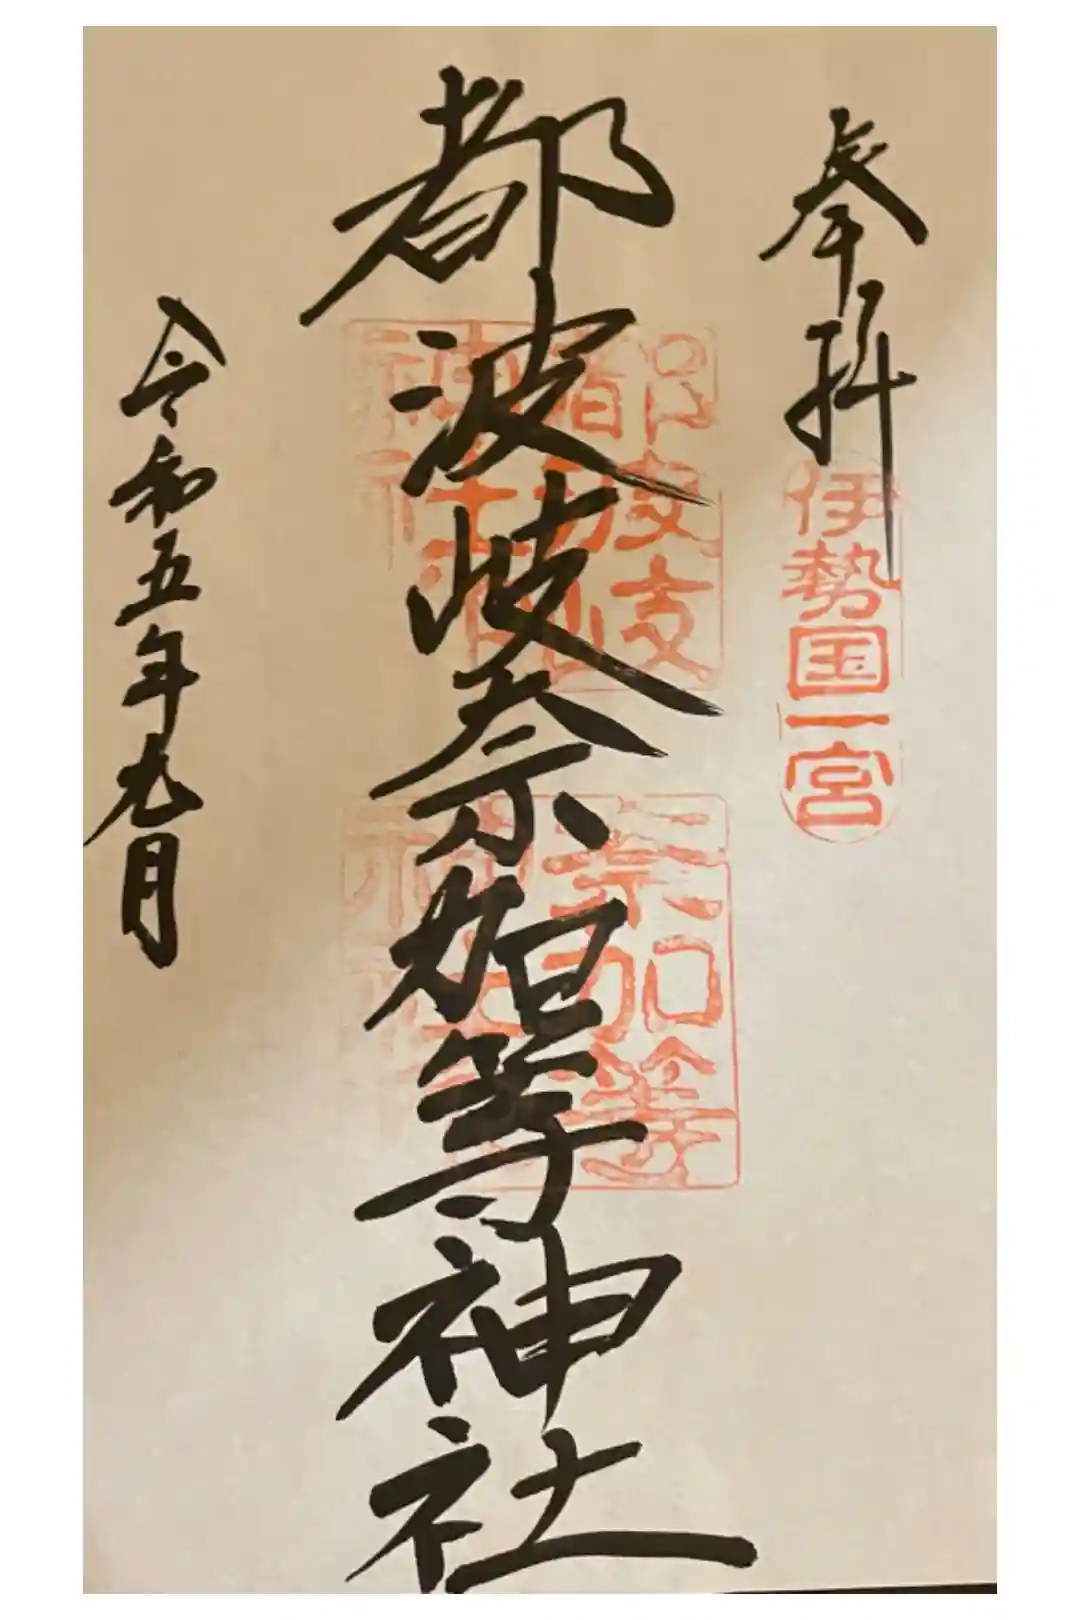 奉拝
伊勢国一宮
都波岐奈加等神社
令和五年九月